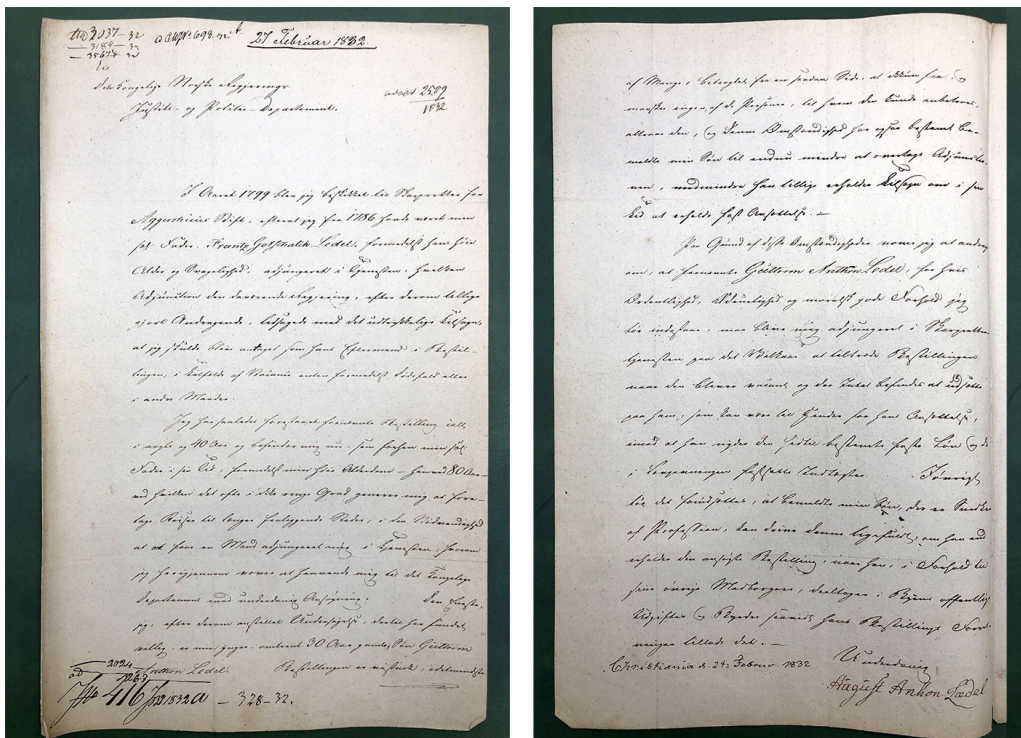 No 3037-32
- 3184 - 32
- 3567 - 32
27 Februar 1832.
2509
1832
Den Kongelige Norske Regjerings
Justits- og Politie-Departement.
I Aaret 1799 blev jeg beskikket til Skarpretter for
Aggershuus Stift, efterat jeg fra 1786 havde været min
sal. Fader, Frantz Gotschalk Lædel, formedelst hans høie
Alder og Svagelighed, adjungeret i Tjenesten, hvilken
Adjunction den daværende Regjering, efter derom
gjort Andragende, ledsagede med det udtrykkelige Tilsagn,
at jeg skulde blive antaget som hans Eftermand i Bestil-
lingen, i Tilfælde af Vacance enten formedelst Dødsfald eller
i andre Maader.
Jeg har saaledes forestaaet fornævnte Bestilling i alt
i nogle og 40 Aar og befinder mig nu, som forhen min sal.
Fader i sin Tid, formedelst min høie Alderdom - henved 80 Aar -
ved hvilken det ofte i ikke ringe Grad generer mig at fore-
tage Reiser til langt fraliggende Steder, i den Nødvendighed
at have en Mand adjungeret mig i Tjenesten, hvorom
jeg herigjennem vover at henvende mig til det Kongelige
Departement med underdanig Ansøgning. Den Eneste,
jeg, efter derom anstillet Undersøgelse, dertil har fundet
villig, er min yngre, omtrent 30 Aar gamle, Søn Guttorm
Anthon Lædel. Bestillingen er nemlig, idetmindste
2024
1263
No 416 Jour 1832 A - 328-32.
af Mange, betragtet fra en saadan Side, at
ringe, af de Personer, til hvem den kunde anbetroes,
attraae den, og denne Omstændighed har ogsaa bestemt be-
meldte min Søn til endnu mindre at overtage Adjunctio-
nen, medmindre han tillige erholder Tilsagn om i sin
Tid at erholde fast Ansættelse. -
Paa Grund af disse Omstændigheder vover jeg at andrage
om, at fornævnte Guttorm Anthon Lædel, for hvis
Ordentlighed, Ædruelighed og moralsk gode Forhold jeg
tør indestaae, maa blive mig adjungeret i Skarpretter-
tjenesten paa det Vilkaar at tiltræde Bestillingen
naar den bliver vacant, og der Intet befindes at udsætte
paa ham, som kan være til Hinder for hans Ansættelse,
imod at han nyder den hidtil bestemte faste Løn og de
i Lovgivningen fastsatte Indtægter. Iøvrigt
tør det forudsættes, at bemeldte min Søn, der er Snedker
af Profession, kan drive denne ligefuldt, om han end
erholder den ansøgte Bestilling, naar han, i Forhold til
sine øvrige Medborgere, deeltager i Byens offentlige
Udgifter og Byrder, saavidt hans Bestillings Forret-
ninger tillade det. -
Christiania d. 24 Februar 1832
Underdanig
August Anthon Lædel